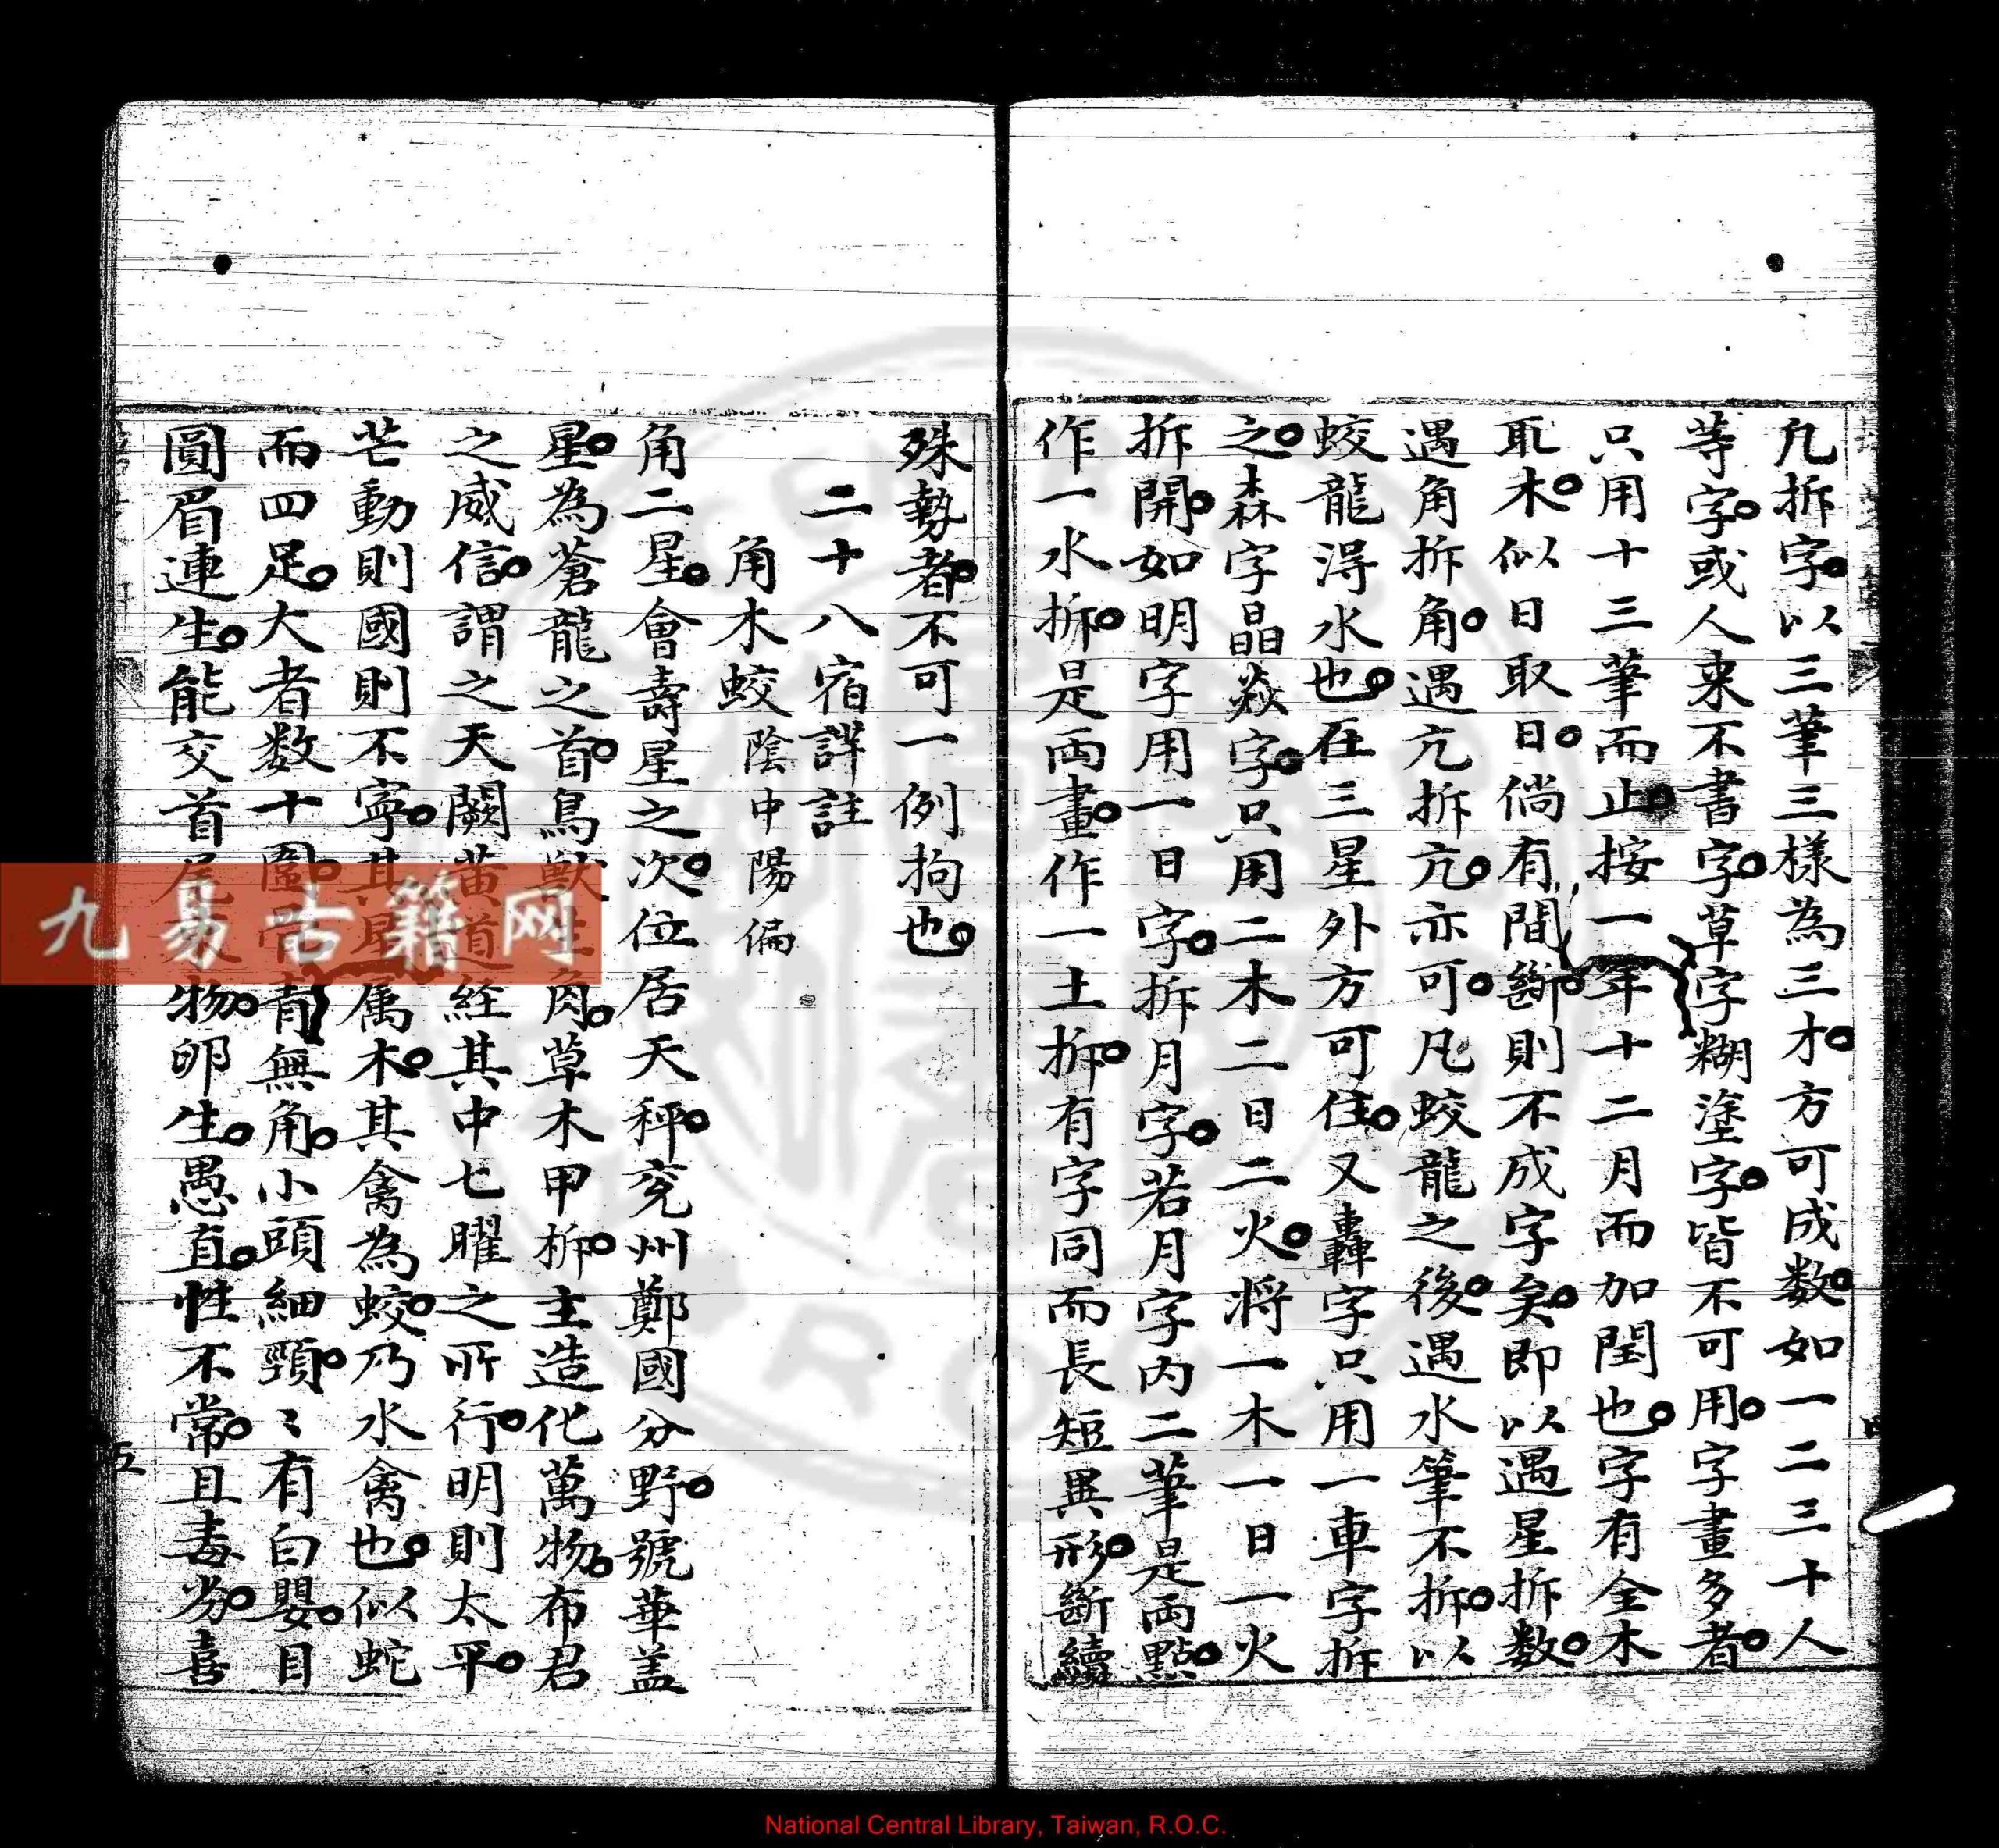 凢拆字以三筆三樣為三才方可成数如一二三十人
等字或人来不書字草字糊塗字皆不可用字畫多者
只用十三筆而止按一年十二月而加閏也字有全木
取木似日取日倘有間斷則不成字矣即以遇星拆数
遇角拆角遇亢拆亢亦可凡蛟龍之後遇水筆不拆以
蛟龍淂水也在三星外方可住又轟字只用一車字拆
之森字晶焱字只用二木二日二火將一木一日一火
拆開如明字用一日字拆月字若月字内二筆是両點
作一水拆是両畫作一土拆有字同而長短異形斷續
殊勢者不可一例拘也
二十八宿詳註
角木蛟陰中陽偏
角二星會壽星之次位居天秤兖州鄭國分野號華盖
星為蒼龍之首鳥獸生肉草木甲柝主造化萬物布君
之威信謂之天闕黄道経其中七曜之所行明則太平
芒動則國則不寧其星属木其禽為蛟乃水禽也似蛇
而四足大者数十圍背青無角小頭細頸〻有白嬰目
圓眉連生能交首尾物卵生愚直性不常且毒劣喜
五
九易古籍网
National Central Library, Taiwan, R.O.C.